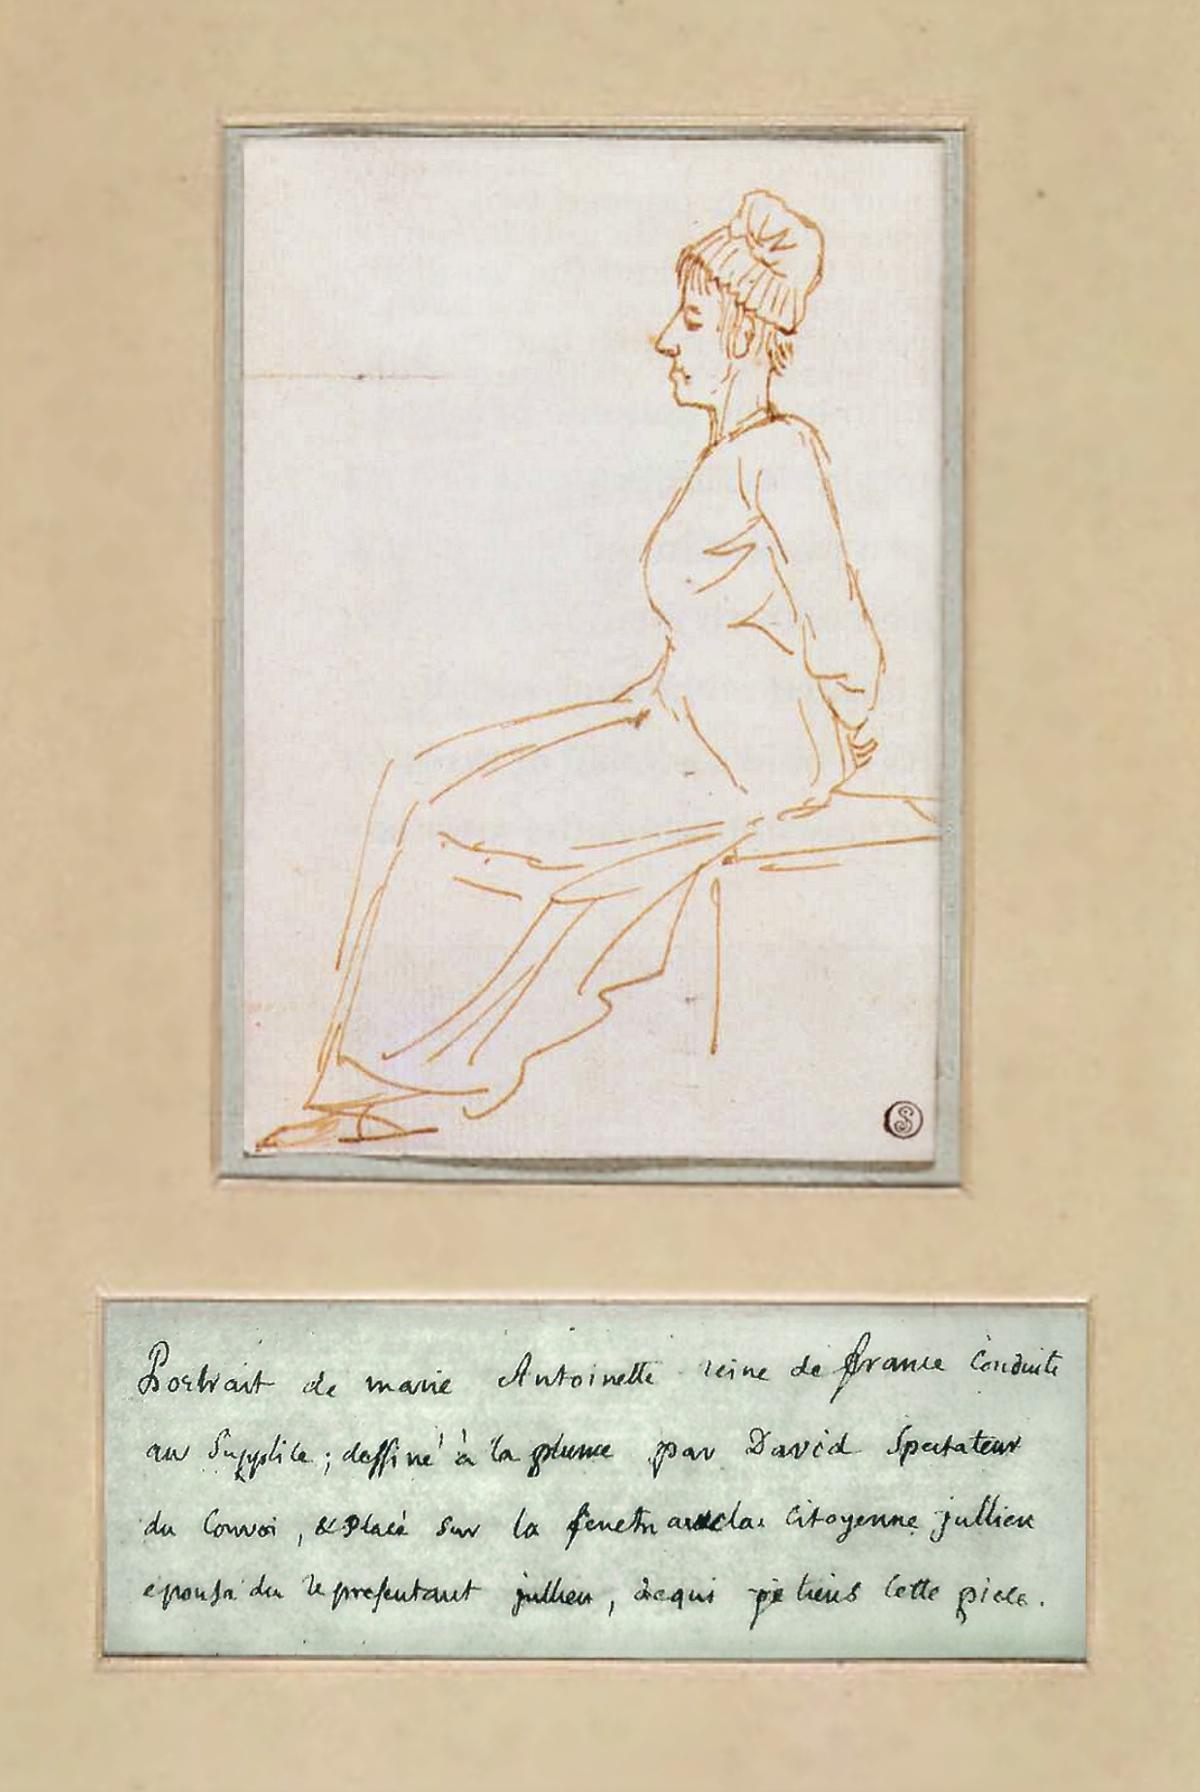 S
Portrait de marie Antoinette reine de france conduite
au Supplice ; dessiné à la plume par David Spectateur
du Convoi, & placé sur la fenetre avec la Citoyenne jullien
epouse du representant jullien, de qui je tiens cette piece.